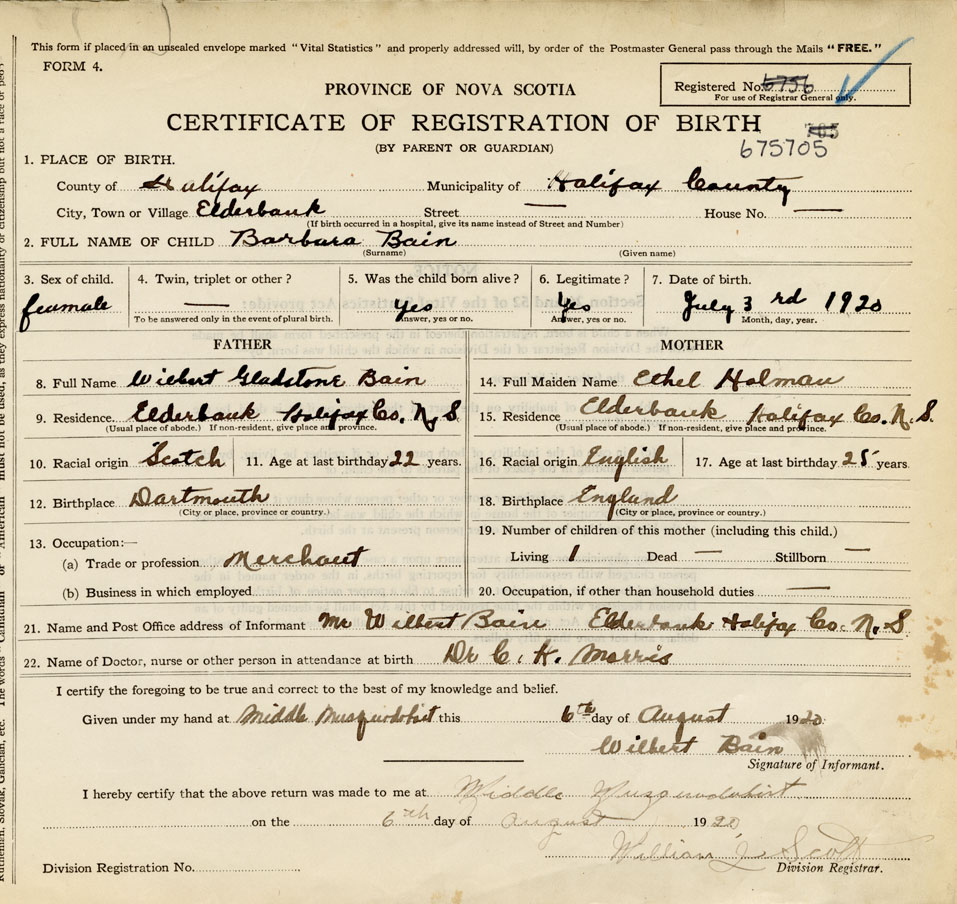 This form if placed in an unsealed envelope marked "Vital Statistics" and properly addressed will, by order of the Postmaster General pass through the Mails "FREE."
FORM 4.
Registered No. 6756
For use of Registrar General only.
PROVINCE OF NOVA SCOTIA
CERTIFICATE OF REGISTRATION OF BIRTH
(BY PARENT OR GUARDIAN)
705
675705
1. PLACE OF BIRTH.
County of Halifax Municipality of Halifax County
City, Town or Village Elderbank Street — House No. —
(If birth occurred in a hospital, give its name instead of Street and Number)
2. FULL NAME OF CHILD Barbara Bain
(Surname) (Given name)
3. Sex of child. 4. Twin, triplet or other? 5. Was the child born alive? 6. Legitimate? 7. Date of birth.
feamale — Yes Yes July 3 rd 1920
To be answered only in the event of plural birth. Answer, yes or no. Answer, yes or no. Month, day, year.
FATHER MOTHER
8. Full Name Wilbert Gladstone Bain 14. Full Maiden Name Ethel Holman
9. Residence. Elderbank Halifax Co. N.S 15. Residence Elderbank Halifax Co. N.S.
(Usual place of abode.) If non-resident, give place and province. (Usual place of abode.) If non-resident, give place and province.
10. Racial origin Scotch 11. Age at last birthday 22 years. 16. Racial origin English 17. Age at last birthday 25 years
12. Birthplace Dartmouth 18. Birthplace England
(City or place, province or country.) (City or place, province or country.)
19. Number of children of this mother (including this child.)
13. Occupation:—
(a) Trade or profession Merchant Living 1 Dead — Stillborn —
(b) Business in which employed 20. Occupation, if other than household duties —
21. Name and Post Office address of Informant Mr Wilbert Bain Elderbank Halifax Co. N.S
22. Name of Doctor, nurse or other person in attendance at birth Dr C. H. Morris
I certify the foregoing to be true and correct to the best of my knowledge and belief.
Given under my hand at Middle Musquodobit this 6th day of August 1920
Wilbert Bain
Signature of Informant.
I hereby certify that the above return was made to me at Middle Musquodobit
on the 6th day of August 1920
William J. Scott
Division Registration No. Division Registrar.